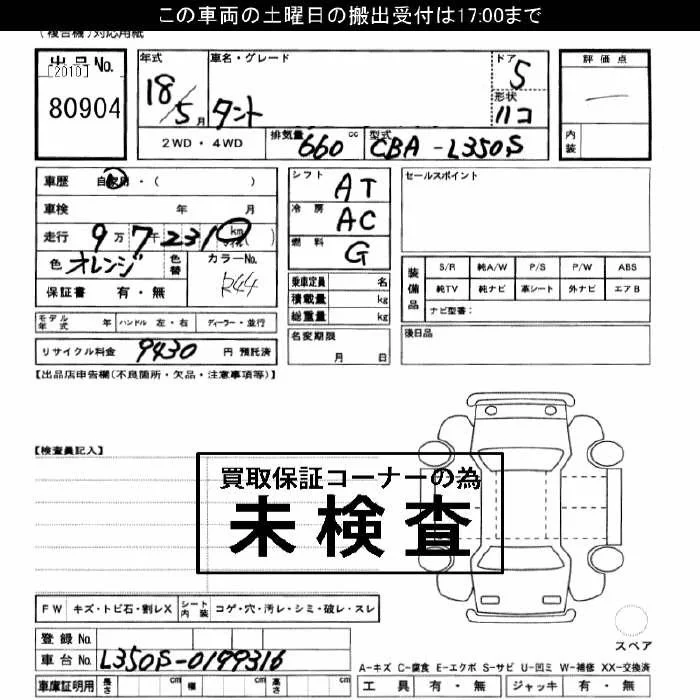 この車両の土曜日の搬出受付は17:00まで
(複合機)対応用紙
出品No.
[2010]
80904
年式
18/5月
車名・グレード
タント
ドア
5
形状
ハコ
評価点
—
内装
2WD・4WD
排気量 660 cc
型式 CBA-L350S
車歴 自家用・( )
車検 年 月
走行 9万7千231 km マイル( )
色 オレンジ
色替
カラーNo.
R44
保証書 有・無
シフト AT
冷房 AC
燃料 G
乗車定員 名
積載量 kg
総重量 kg
名変期限
月 日
セールスポイント
装備品
S/R 純A/W P/S P/W ABS
純TV 純ナビ 革シート 外ナビ エアB
ナビ型番:
後日品
モデル年式 年 ハンドル 左・右 ディーラー・並行
リサイクル料金 9430 円 預託済
【出品店申告欄(不良箇所・欠品・注意事項等)】
【検査員記入】
買取保証コーナーの為
未検査
FW キズ・トビ石・割レX シート内装 コゲ・穴・汚レ・シミ・破レ・スレ
登録No.
車台No. L350S-0199316
車庫証明用 長さ cm 幅 cm 高さ cm
スペア
A-キズ C-腐食 E-エクボ S-サビ U-凹ミ W-補修 XX-交換済
工具 有・無 ジャッキ 有・無